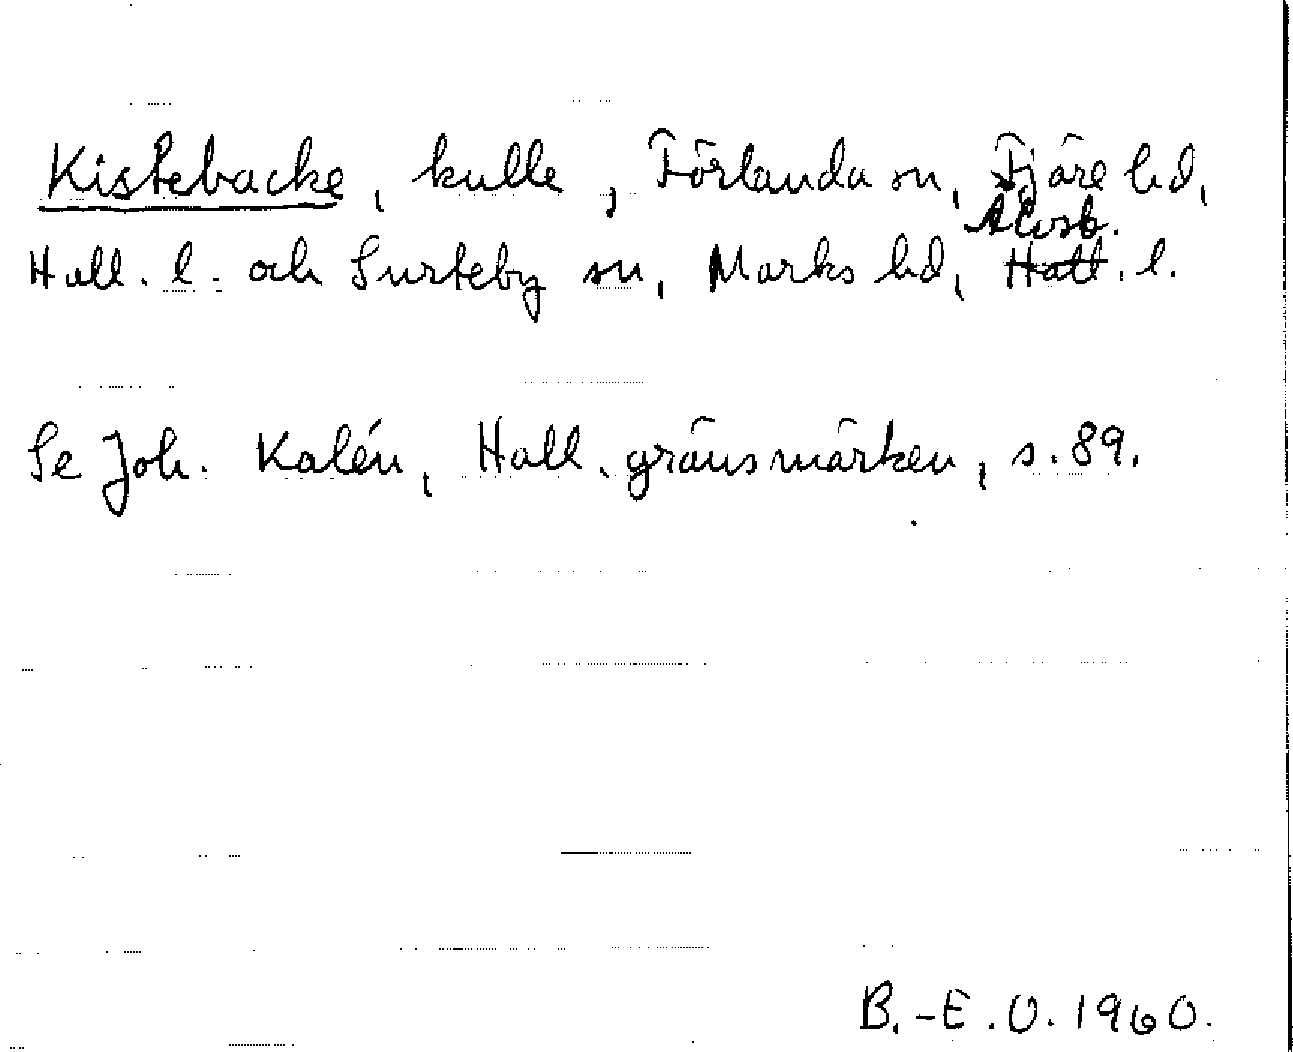 Kistebacke, kulle, Förlanda sn, Fjäre hd,
Hall. l. och Surteby sn, Marks hd, Älvsb. l.
Se Joh. Kalén, Hall. gränsmärken, s. 89.
B.-E. O. 1960.